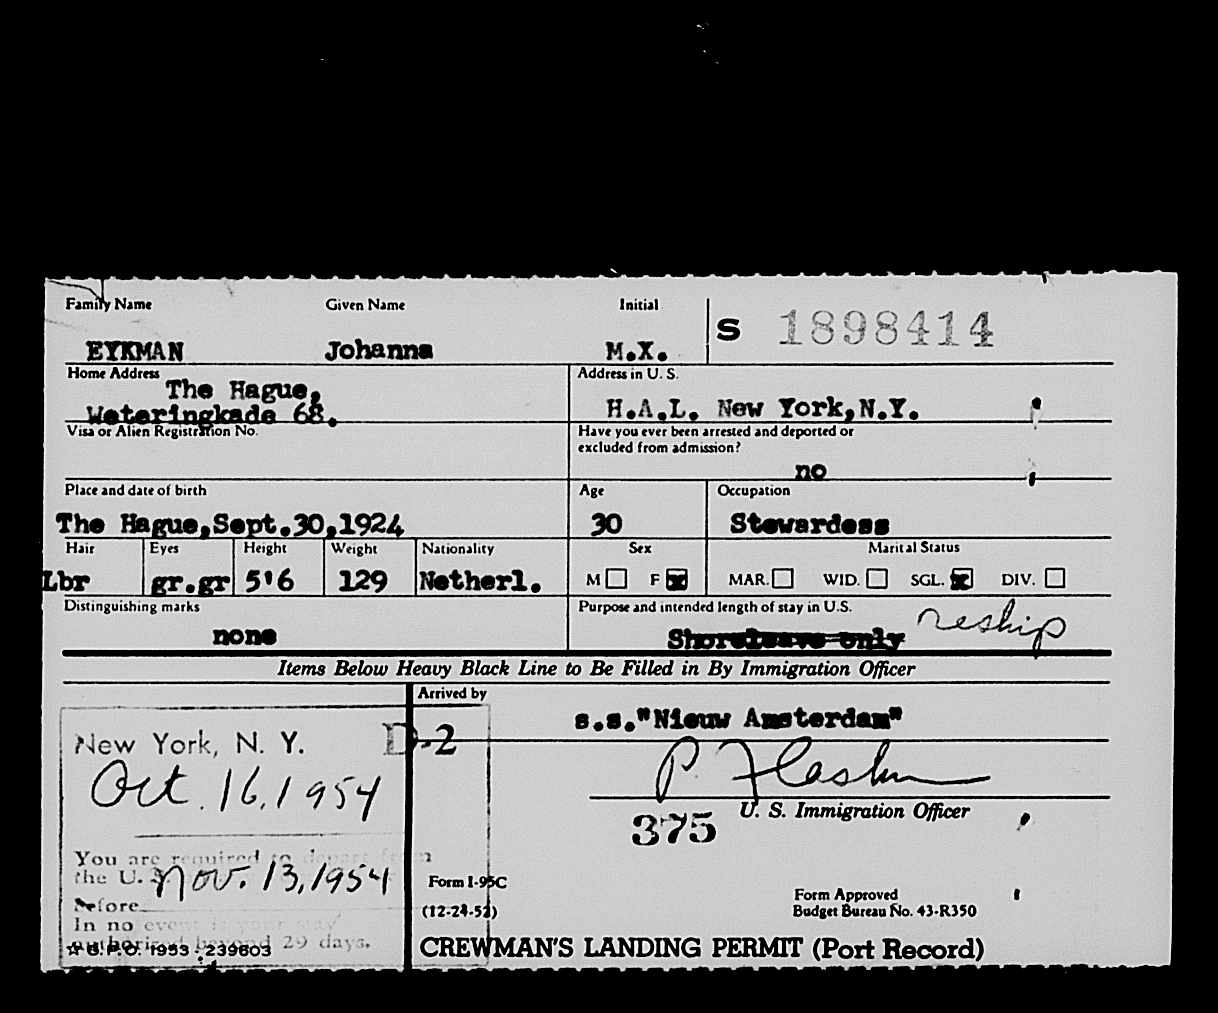 Family Name Given Name Initial
EYKMAN Johanna M.X. S 1898414
Home Address Address in U. S.
The Hague,
Weteringkade 68. H.A.L. New York,N.Y.
Visa or Alien Registration No. Have you ever been arrested and deported or
excluded from admission?
no
Place and date of birth Age Occupation
The Hague,Sept.30,1924 30 Stewardess
Hair Eyes Height Weight Nationality Sex Marital Status
Lbr gr.gr 5'6 129 Netherl. M F x MAR. WID. SGL. x DIV.
Distinguishing marks Purpose and intended length of stay in U.S.
none Shoreleave only reship
Items Below Heavy Black Line to Be Filled in By Immigration Officer
Arrived by
s.s."Nieuw Amsterdam"
New York, N. Y. D-2
Oct. 16, 1954
P. Flashn
U. S. Immigration Officer
375
You are required to depart from
the U. S. Nov. 13, 1954
Before
In no event is your stay
authorized beyond 29 days.
☆ G.P.O. 1953 - 239603
Form I-95C
(12-24-52)
Form Approved
Budget Bureau No. 43-R350
CREWMAN'S LANDING PERMIT (Port Record)